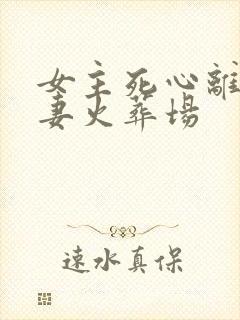 女主死心離
妻火葬場
速水真保